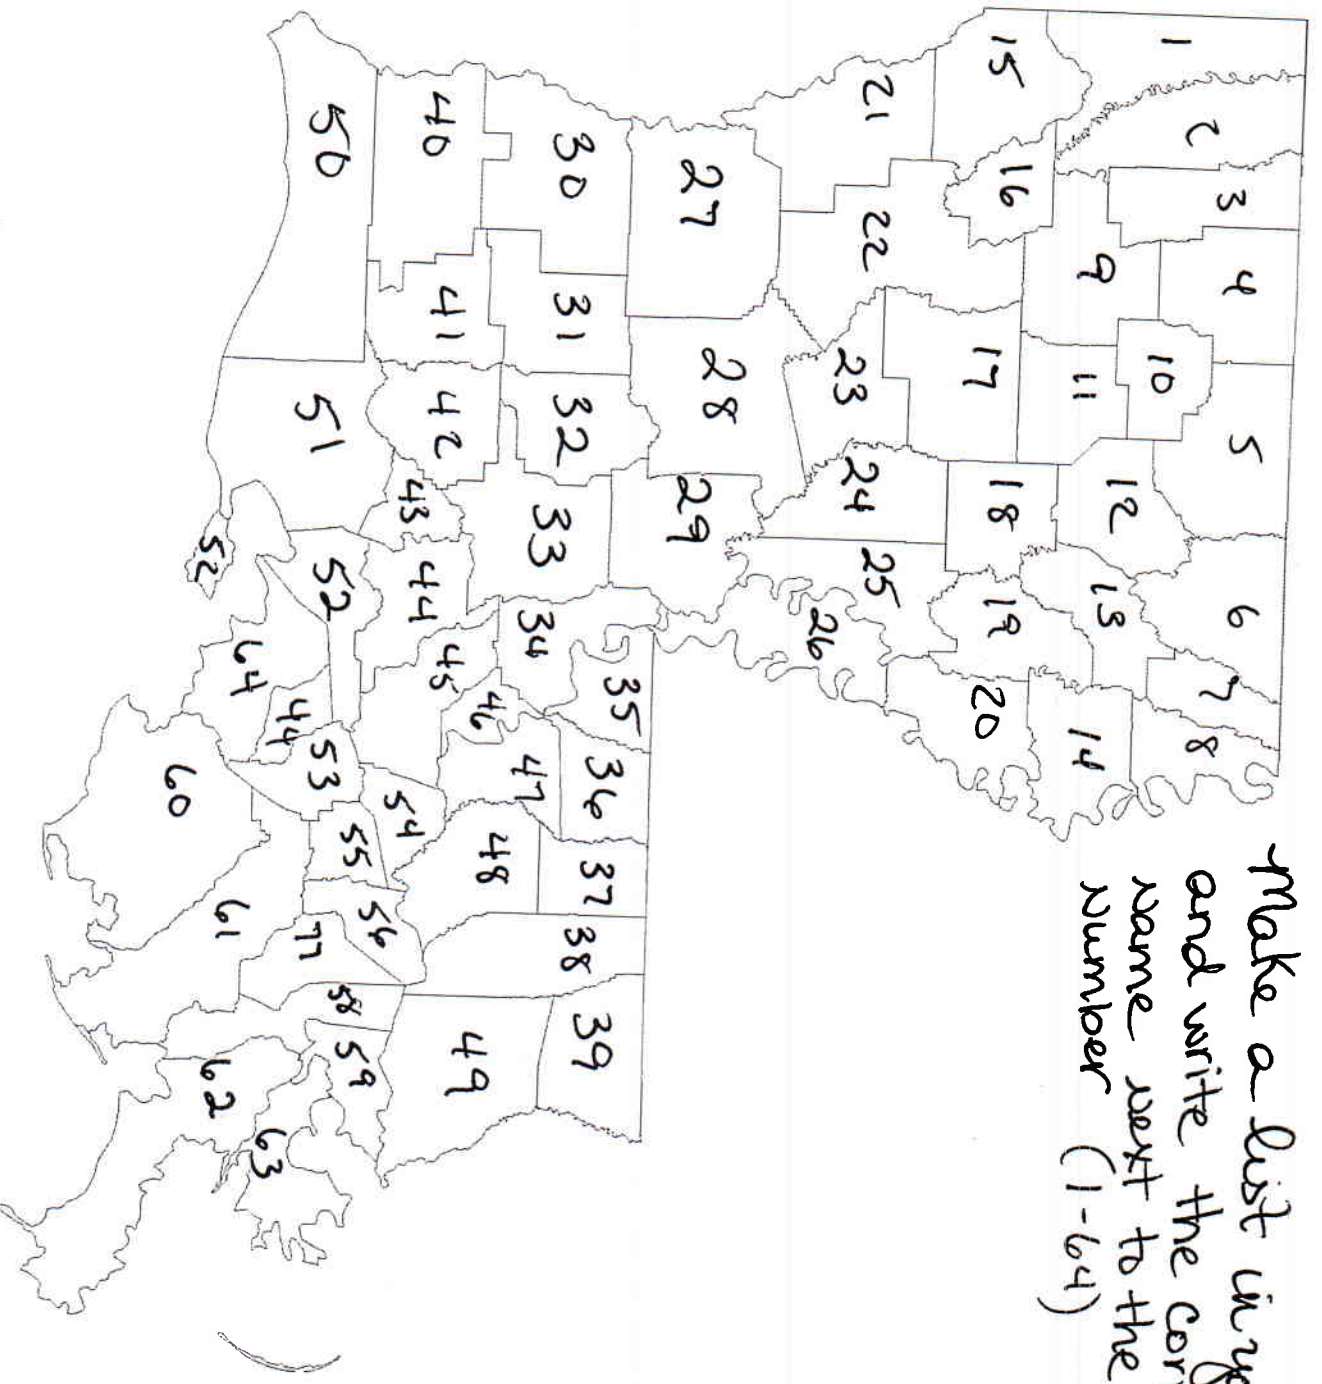 -Make a list in
and write the cor
name next to the
number (1-64)
1 2 3 4 5 6 7 8
9 10 11 12 13 14
15 16 17 18 19 20
21 22 23 24 25 26
27 28 29
30 31 32 33 34 35 36 37 38 39
40 41 42 43 44 45 46 47 48 49
50 51 52 53 54 55 56 77 58 59
52 64 44 60 61 62 63